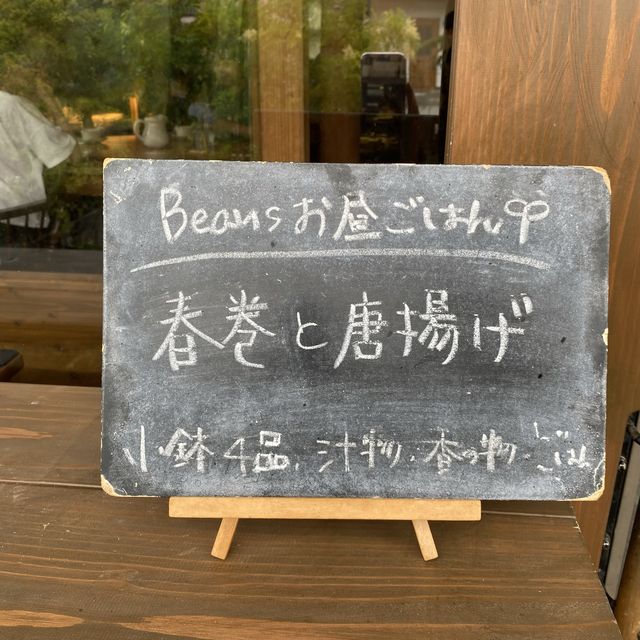 Beansお昼ごはん
春巻と唐揚げ
小鉢4品、汁物、香の物、ごはん